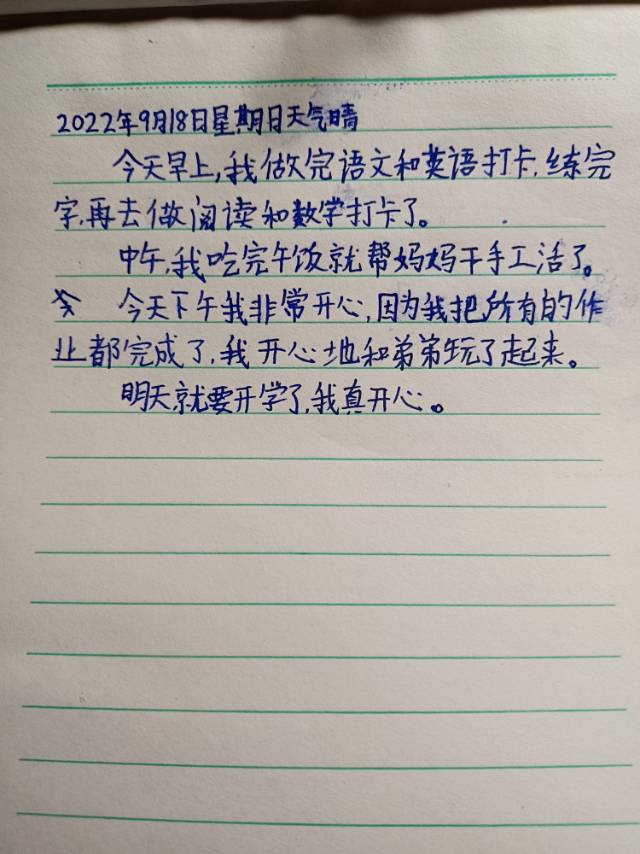 2022年9月18日星期日天气晴
今天早上,我做完语文和英语打卡,练完
字,再去做阅读和数学打卡了。
中午,我吃完午饭就帮妈妈干手工活了。
今天下午我非常开心,因为我把所有的作
业都完成了,我开心地和弟弟玩了起来。
明天,就要开学了,我真开心。